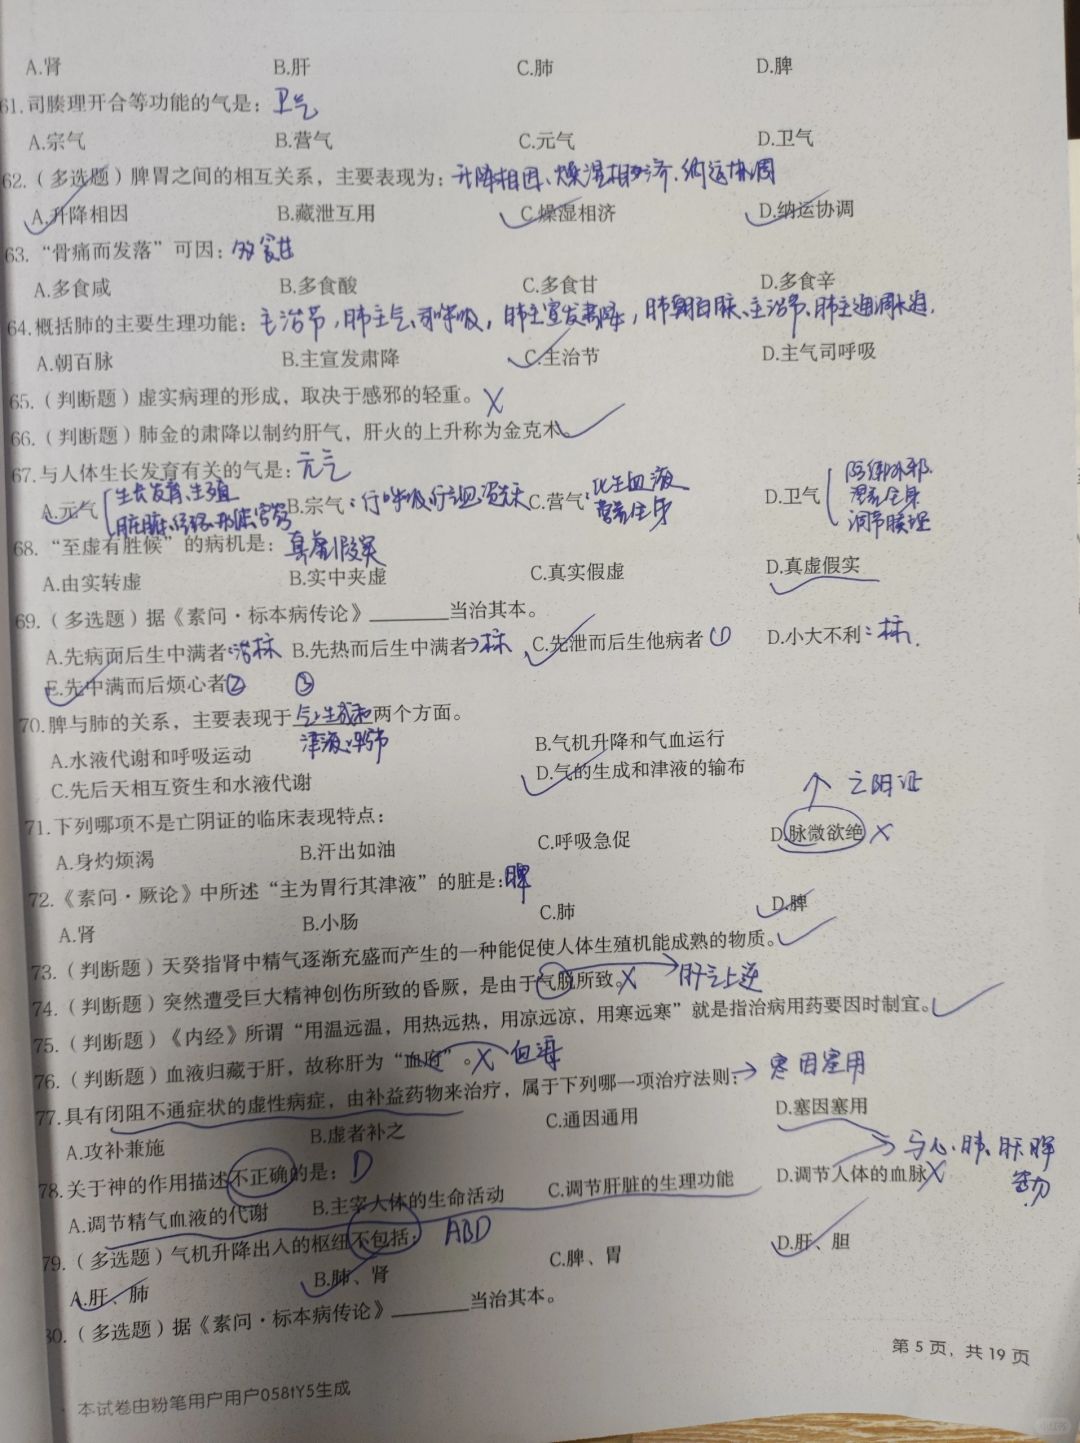 A.肾 B.肝 C.肺 D.脾
61.司腠理开合等功能的气是：卫气
A.宗气 B.营气 C.元气 D.卫气
62.（多选题）脾胃之间的相互关系，主要表现为：升降相因、燥湿相济、纳运协调
A.升降相因 B.藏泄互用 C.燥湿相济 D.纳运协调
63.“骨痛而发落”可因：多食甘
A.多食咸 B.多食酸 C.多食甘 D.多食辛
64.概括肺的主要生理功能：主治节，肺主气、司呼吸，肺主宣发肃降，肺朝百脉、主治节、肺主通调水道.
A.朝百脉 B.主宣发肃降 C.主治节 D.主气司呼吸
65.（判断题）虚实病理的形成，取决于感邪的轻重。X
66.（判断题）肺金的肃降以制约肝气，肝火的上升称为金克木。
67.与人体生长发育有关的气是：元气
A.元气 生长发育、生殖 B.宗气：行呼吸、行气血 C.营气：化生血液 D.卫气 防御外邪.
脏腑、经络、形体官窍 营养全身 温养全身
调节腠理
68.“至虚有胜候”的病机是：真虚假实
A.由实转虚 B.实中夹虚 C.真实假虚 D.真虚假实
69.（多选题）据《素问·标本病传论》________当治其本。
A.先病而后生中满者：治标 B.先热而后生中满者→标 C.先泄而后生他病者① D.小大不利：标.
E.先中满而后烦心者② ③
70.脾与肺的关系，主要表现于气生成和两个方面。
津液 输布
A.水液代谢和呼吸运动 B.气机升降和气血运行
C.先后天相互资生和水液代谢 D.气的生成和津液的输布
71.下列哪项不是亡阴证的临床表现特点： ↑亡阳证
A.身灼烦渴 B.汗出如油 C.呼吸急促 D.脉微欲绝 X
72.《素问·厥论》中所述“主为胃行其津液”的脏是：脾
A.肾 B.小肠 C.肺 D.脾
73.（判断题）天癸指肾中精气逐渐充盛而产生的一种能促使人体生殖机能成熟的物质。
74.（判断题）突然遭受巨大精神创伤所致的昏厥，是由于气脱所致。X→肝气上逆
75.（判断题）《内经》所谓“用温远温，用热远热，用凉远凉，用寒远寒”就是指治病用药要因时制宜。
76.（判断题）血液归藏于肝，故称肝为“血府”。X 血海
77.具有闭阻不通症状的虚性病症，由补益药物来治疗，属于下列哪一项治疗法则：→塞因塞用
A.攻补兼施 B.虚者补之 C.通因通用 D.塞因塞用
78.关于神的作用描述不正确的是：D →与心、肺、肝、脾
A.调节精气血液的代谢 B.主宰人体的生命活动 C.调节肝脏的生理功能 D.调节人体的血脉X
79.（多选题）气机升降出入的枢纽不包括：ABD
A.肝、肺 B.肺、肾 C.脾、胃 D.肝、胆
80.（多选题）据《素问·标本病传论》________当治其本。
第 5 页，共 19 页
本试卷由粉笔用户用户058tY5生成
小红书